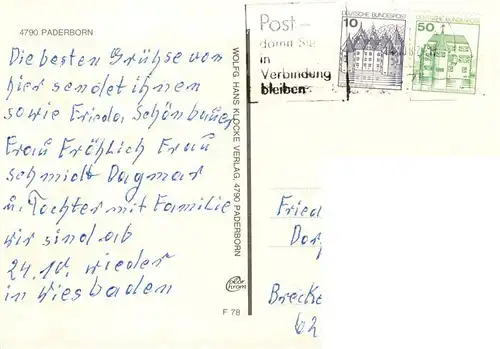 4790 PADERBORN
Die besten Grühse von
hier sendet ihnen
sowie Frieda, Schönbauer
Frau Fröhlich Frau
Schmidt Dagmar
u. Tochter mit Familie
wir sind ab
24.10. wieder
in Wiesbaden
WOLFG. HANS KLOCKE VERLAG, 4790 PADERBORN
color
chrom
F 78
Post –
damit Sie
in
Verbindung
bleiben
10
DEUTSCHE BUNDESPOST
50
DEUTSCHE BUNDESPOST
Fried
Dor
Brecke
62